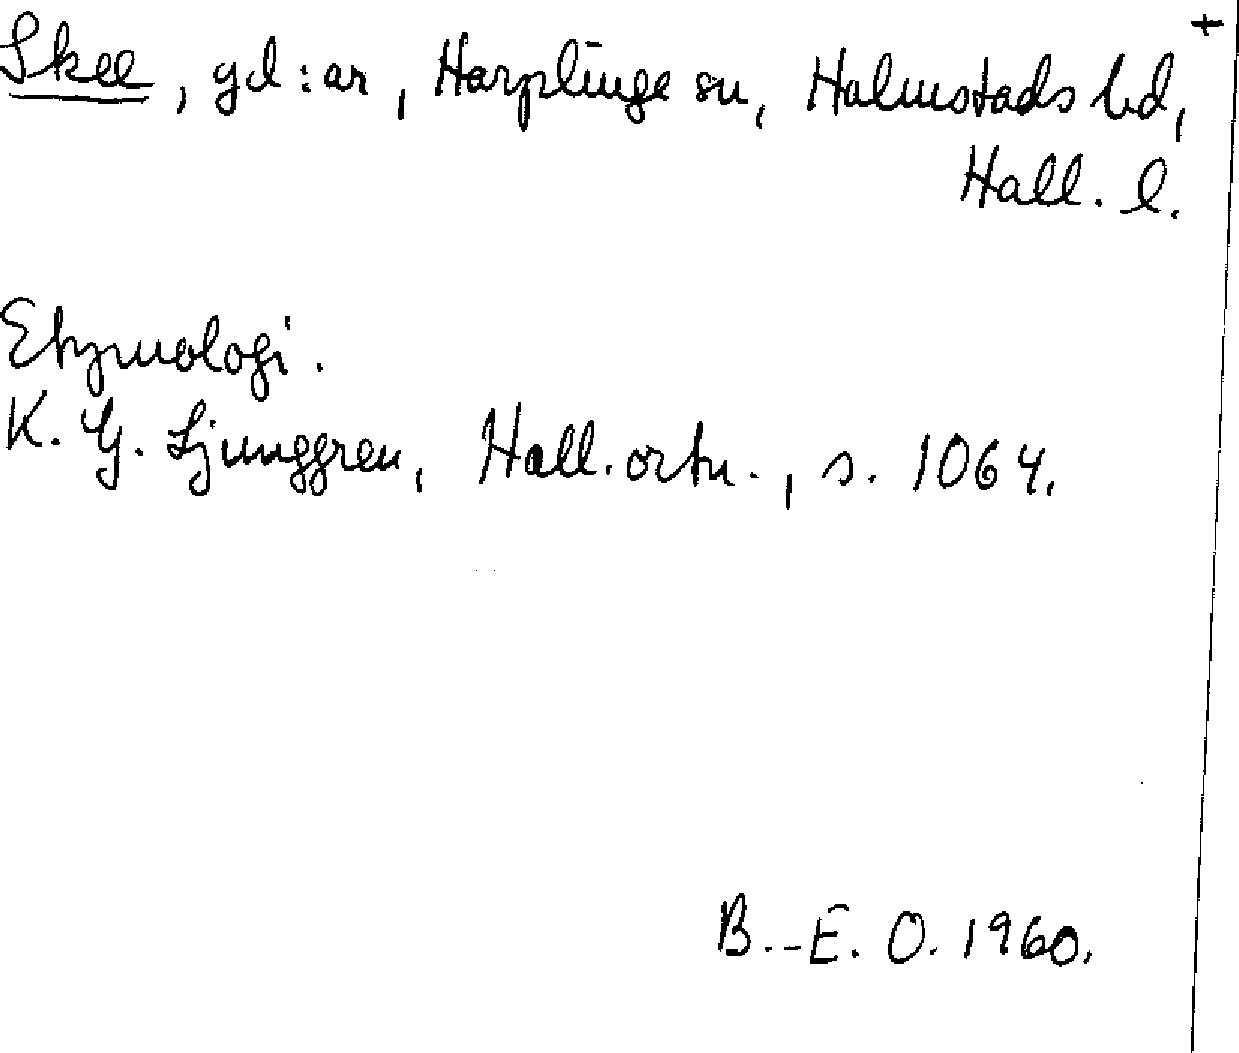 +
Skee, gd:ar, Harplinge sn, Halmstads hd,
Hall. l.
Etymologi.
K. G. Ljunggren, Hall. ortn., s. 1064.
B.-E. O. 1960.